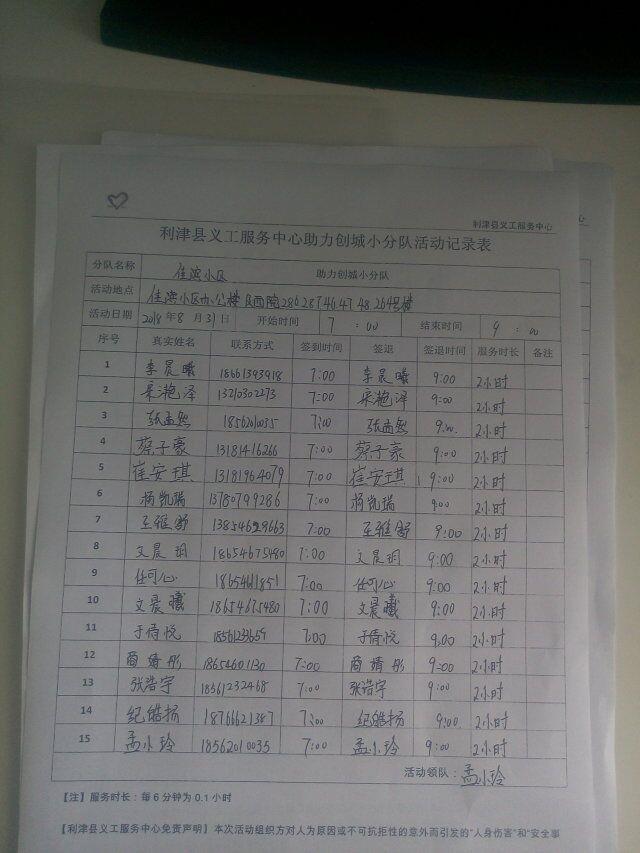 利津县义工服务中心
利津县义工服务中心助力创城小分队活动记录表
分队名称 佳滨小区 助力创城小分队
活动地点 佳滨小区办公楼 西院286 287 46 47 48 264号楼
活动日期 2018年8月31日 开始时间 7:00 结束时间 9:00
序号 真实姓名 联系方式 签到时间 签退 签退时间 服务时长 备注
1 李晨曦 18661393918 7:00 李晨曦 9:00 2小时
2 采滟泽 13210302273 7:00 采滟泽 9:00 2小时
3 张孟然 18562010035 7:00 张孟然 9:00 2小时
4 蔡子豪 13181416266 7:00 蔡子豪 9:00 2小时
5 崔安琪 13181964079 7:00 崔安琪 9:00 2小时
6 杨凯瑞 13780799286 7:00 杨凯瑞 9:00 2小时
7 王雅舒 13854629663 7:00 王雅舒 9:00 2小时
8 文晨玥 18654675480 7:00 文晨玥 9:00 2小时
9 任可心 1865461851 7:00 任可心 9:00 2小时
10 文晨曦 18654675480 7:00 文晨曦 9:00 2小时
11 于倩悦 18561233659 7:00 于倩悦 9:00 2小时
12 商婧彤 18654601130 7:00 商婧彤 9:00 2小时
13 张浩宇 18561232468 7:00 张浩宇 9:00 2小时
14 纪皓扬 18766621387 7:00 纪皓扬 9:00 2小时
15 孟小玲 18562010035 7:00 孟小玲 9:00 2小时
活动领队：孟小玲
【注】服务时长：每6分钟为0.1小时
【利津县义工服务中心免责声明】本次活动组织方对人为原因或不可抗拒性的意外而引发的“人身伤害”和“安全事